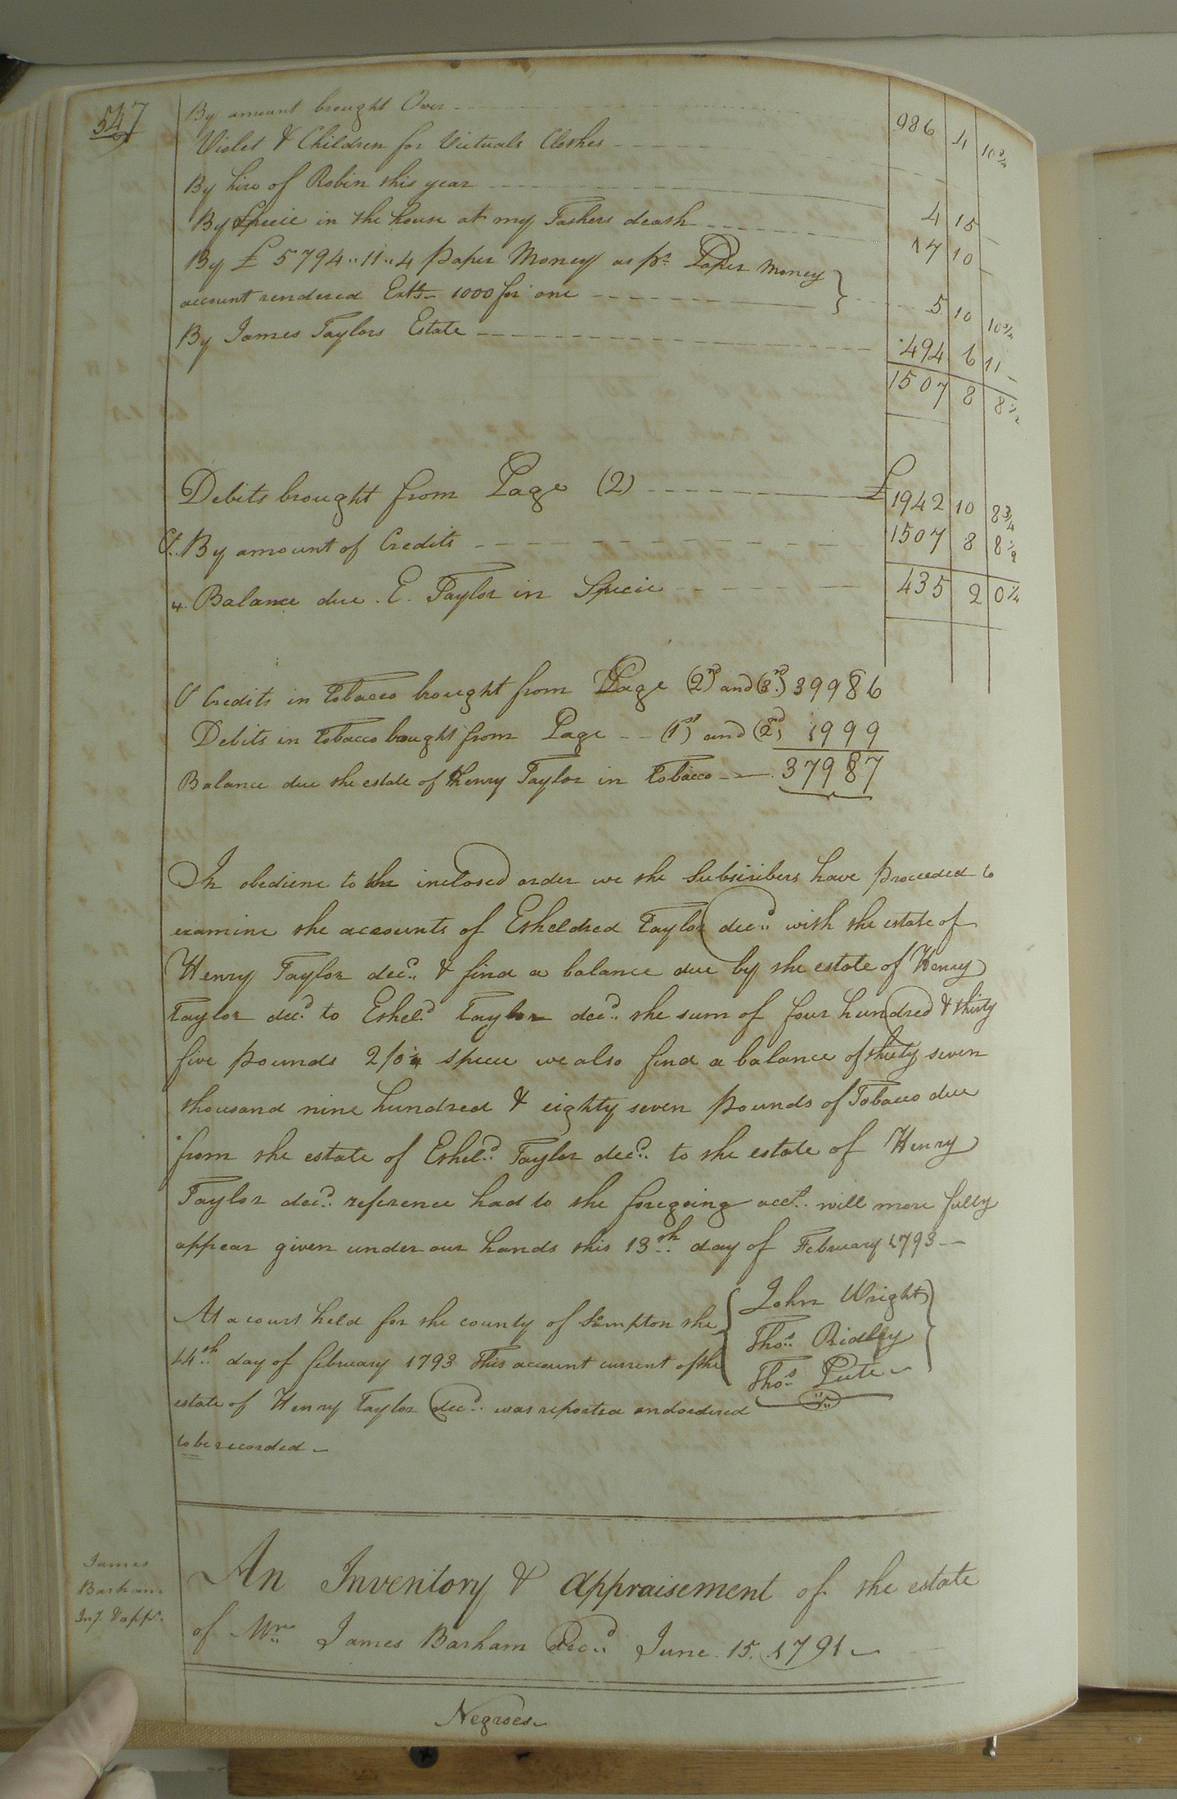 547
By amount brought Over 986 4 10 3/4
Violet & Children for Victuals Clothes
By hire of Robin this year 4 15 -
By Specie in the house at my Fathers death 17 10 -
By £ 5794..11..4 Paper Money as pr. Paper money
account rendered Exts- 1000 for one 5 10 10 3/4
By James Taylors Estate 494 6 11 -
1507 8 8 1/2
Debits brought from Page (2) £ 1942 10 8 3/4
By amount of Credits 1507 8 8 1/2
Balance due E. Taylor in Specie 435 2 0 1/4
Credits in Tobacco brought from Page (2nd) and (3rd) 39986
Debits in Tobacco bought from Page -- (1st) and (2d) 1999
Balance due the estate of Henry Taylor in Tobacco -- 37987
In obediene to the inclosed order we the Subscribers have Proceeded to
examine the accounts of Etheldred Taylor decd. with the estate of
Henry Taylor decd. & find a balance due by the estate of Henry
Taylor decd. to Etheld. Taylor decd. the sum of four hundred & thirty
five Pounds 2/0¼ specie we also find a balance of thirty seven
thousand nine hundred & eighty seven Pounds of Tobacco due
from the estate of Etheld. Taylor decd. to the estate of Henry
Taylor decd. reference had to the foregoing acct. will more fully
appear given under our hands this 13th day of February 1793 -
John Wright
Thos. Ridley
Thos. Pete
At a court held for the county of Sumpton the
14th day of february 1793 This account current of the
estate of Henry Taylor decd. was reported and ordered
to be recorded -
James
Barham
Inv. & appt.
An Inventory & Appraisement of the estate
of Mr. James Barham Decd. June 15. 1791 -
Negroes